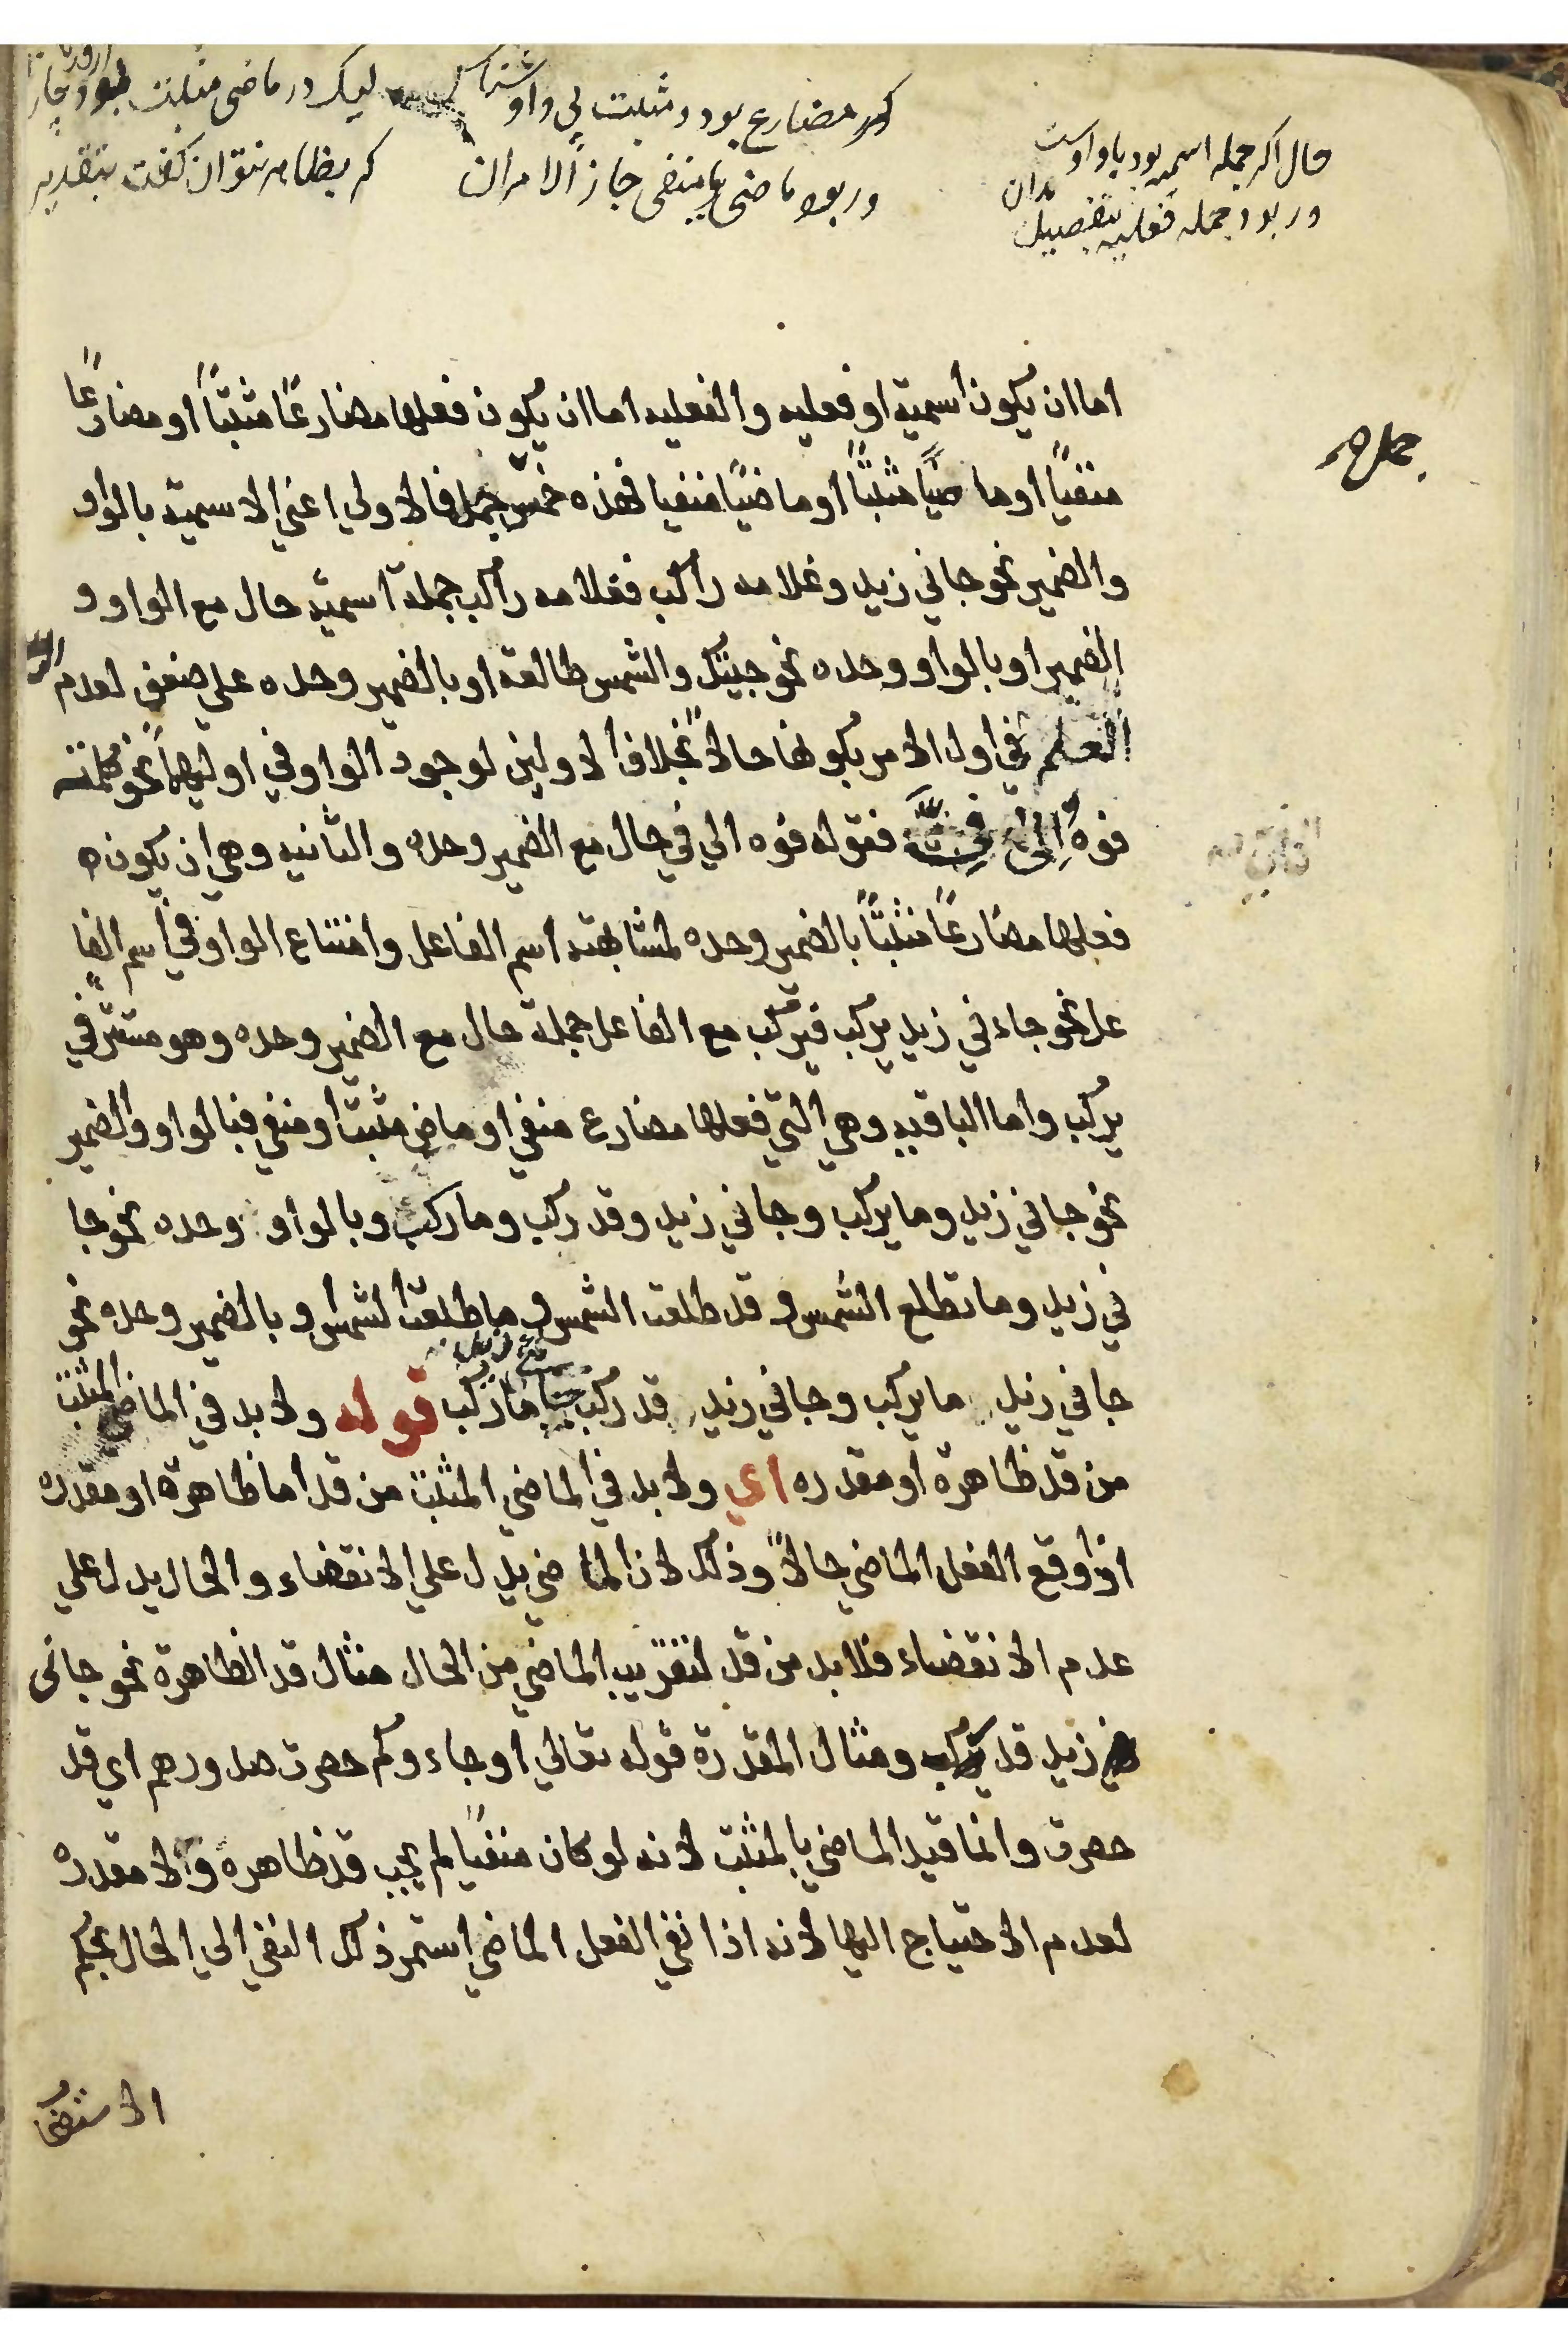 حال اكر جمله اسميه بود با واوست
ور بود جمله فعليه بتفصيل بدان
كر مضارع بود و مثبت بي واو
ور بود ماضي يا منفي جاز الامران
ليك در ماضي مثبت
كر بظاهر نتوان كفت بتقدير
اما ان يكون اسمية او فعليه والفعليه اما ان يكون فعلها مضارعًا مثبتًا او مضارعًا
منفيًا او ماضيًا مثبتًا او ماضيًا منفيا فهذه خمس جمل فالاولي اعني الاسمية بالواو
والضمير نحو جاني زيد وغلامه راكب فغلامه راكب جملة اسمية حال مع الواو و
الضمير او بالواو وحده نحو جيتك والشمس طالعة او بالضمير وحده علي ضعف لعدم
العلم في اول الامر بكونها حالاً بخلاف الاولين لوجود الواو في اوليهما نحو كلمته
فوه الي في فقوله فوه الي في حال مع الضمير وحده والثانيه وهي ان يكون
فعلها مضارعًا مثبتًا بالضمير وحده لمشابهته اسم الفاعل وامتناع الواو في اسم الفا
عل نحو جاءني زيد يركب فيركب مع الفاعل جملة حال مع الضمير وحده وهو مستتر في
يركب واما الباقيه وهي التي فعلها مضارع منفي او ماض مثبت او منفي فبالواو والضمير
نحو جاني زيد وما يركب وجاني زيد وقد ركب وما ركب وبالواو وحده نحو جا
ني زيد وما تطلع الشمس و قد طلعت الشمس و ما طلعت الشمس و بالضمير وحده نحو
جاني زيد ما يركب وجاني زيد قد ركب ما ركب قوله ولا بد في الماضي المثبت
من قد ظاهرة او مقدره اي ولا بد في الماضي المثبت من قد اما ظاهرة او مقدره
اذا وقع الفعل الماضي حالاً وذلك لان الماضي يدل علي الانقضاء والحال يدل علي
عدم الانقضاء فلا بد من قد لتقريب الماضي من الحال مثال قد الظاهرة نحو جانى
زيد قد ركب ومثال المقدرة قوله تعالي اوجاءوكم حصرت صدورهم اي قد
حصرت وانما قيد الماضي بالمثبت لانه لو كان منفيًا لم يجب قد ظاهرة ولا مقدره
لعدم الاحتياج اليها لانه اذا نفي الفعل الماضي استمر ذلك النفي الي الحال بحكم